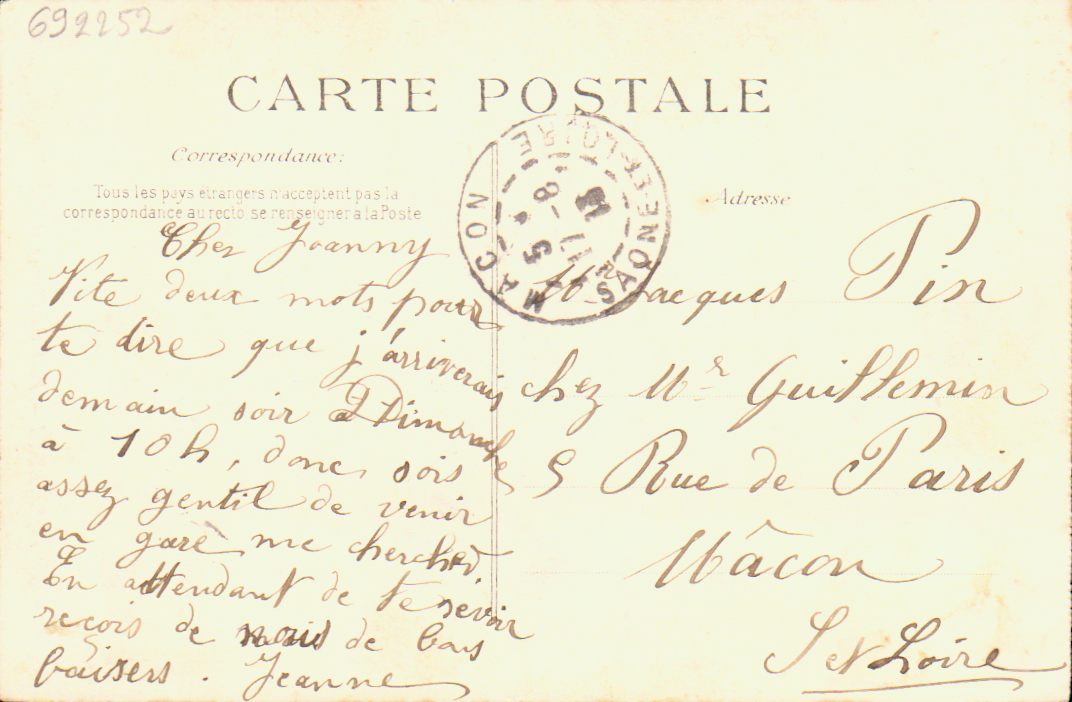 692252
CARTE POSTALE
Correspondance:
Tous les pays étrangers n'acceptent pas la
correspondance au recto se renseigner à la Poste
Cher Joanny
Vite deux mots pour
te dire que j'arriverais
demain soir Dimanche
à 10h, donc sois
assez gentil de venir
en gare me chercher.
En attendant de te revoir
reçois de nous de bons
baisers. Jeanne
MACON
SAONE-ET-LOIRE
Adresse
Mr Jacques Pin
chez Mr Guillemin
5 Rue de Paris
Mâcon
S et Loire